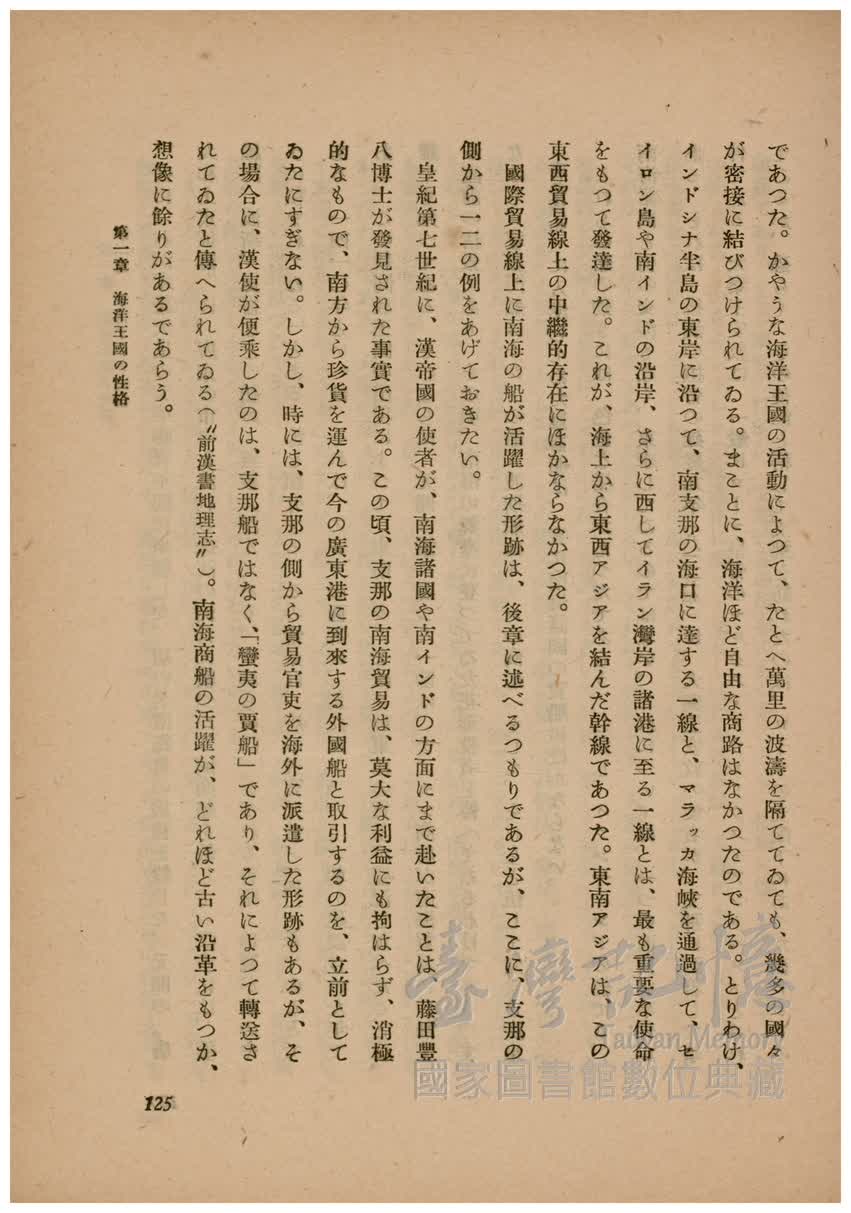 であつた。かやうな海洋王國の活動によつて、たとへ萬里の波濤を隔ててゐても、幾多の國々
が密接に結びつけられてゐる。まことに、海洋ほど自由な商路はなかつたのである。とりわけ、
インドシナ半島の東岸に沿つて、南支那の海口に達する一線と、マラッカ海峽を通過して、セ
イロン島や南インドの沿岸、さらに西してイラン灣岸の諸港に至る一線とは、最も重要な使命
をもつて發達した。これが、海上から東西アジアを結んだ幹線であつた。東南アジアは、この
東西貿易線上の中繼的存在にほかならなかつた。
國際貿易線上に南海の船が活躍した形跡は、後章に述べるつもりであるが、ここに、支那の
側から一二の例をあげておきたい。
皇紀第七世紀に、漢帝國の使者が、南海諸國や南インドの方面にまで赴いたことは、藤田豐
八博士が發見された事實である。この頃、支那の南海貿易は、莫大な利益にも拘はらず、消極
的なもので、南方から珍貨を運んで今の廣東港に到來する外國船と取引するのを、立前として
ゐたにすぎない。しかし、時には、支那の側から貿易官吏を海外に派遣した形跡もあるが、そ
の場合に、漢使が便乘したのは、支那船ではなく、「蠻夷の賈船」であり、それによつて轉送さ
れてゐたと傳へられてゐる(〝前漢書地理志〟)。南海商船の活躍が、どれほど古い沿革をもつか、
想像に餘りがあるであらう。
第一章 海洋王國の性格
125
臺灣記憶
Taiwan Memory
國家圖書館數位典藏